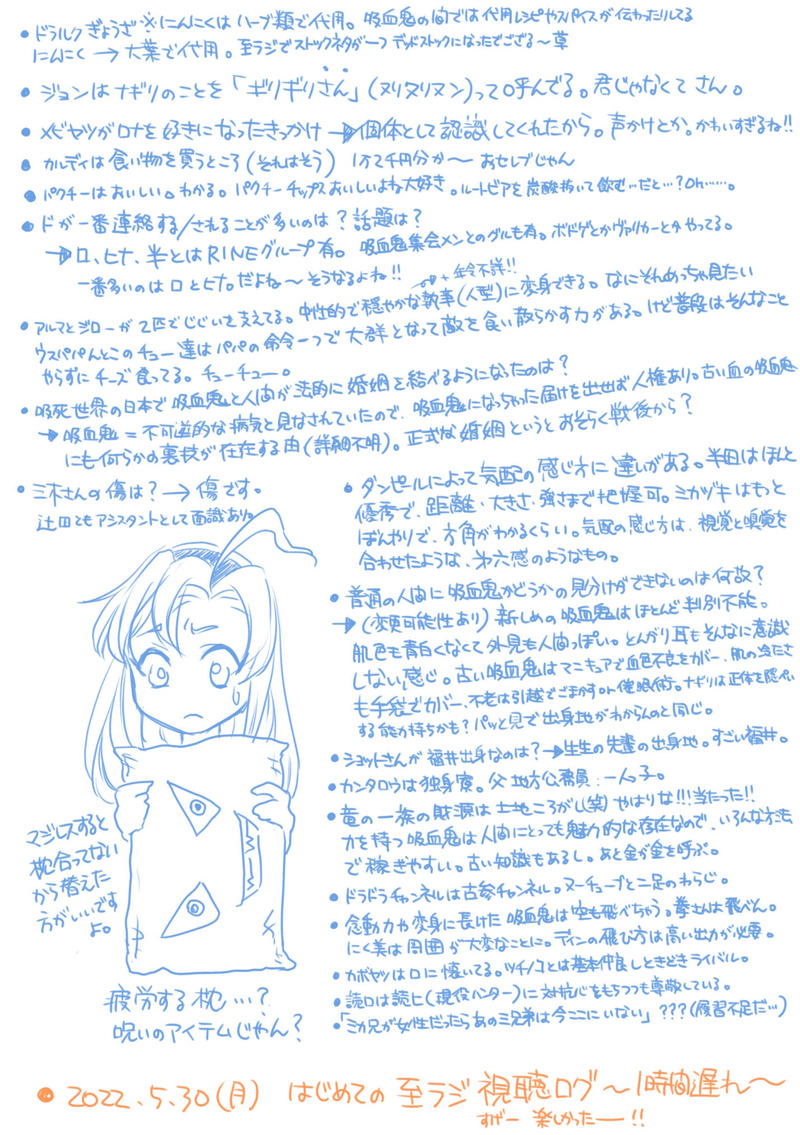 • ドラルクぎょうざ ※にんにくは ハーブ類で代用。吸血鬼の間では代用レシピやスパイスが伝わったりしてる
にんにく → 大葉で代用。至ラジでストックネタが一つ デッドストックになったでござる〜草
• ジョンはナギリのことを「ギリギリさん」(ヌリヌリヌン)って呼んでる。君じゃなくてさん。
• メビヤツがロナを好きになったきっかけ → 個体として認識してくれたから。声かけとか。かわいすぎるね!!
• カルディは食い物を買うところ(それはそう) 1万2千円分か〜 おセレブじゃん
• パクチーはおいしい。わかる。パクチーチップスおいしいよね大好き。ルートビアを炭酸抜いて飲む…だと…?Oh……。
• ドが一番連絡する/されることが多いのは?話題は?
→ロ、ヒナ、半とはRINEグループ有。吸血鬼集会メンとのグルも有。ボドゲとかヴァリカーとか今やってる。
一番多いのはロとヒナ。だよね〜そうなるよね!!
年令不詳!!
• アルマとジローが2匹でじじいを支えてる。中性的で穏やかな執事(人型)に変身できる。なにそれめっちゃ見たい
ウスパパんとこのチュー達はパパの命令一つで大群となって敵を食い散らかす力がある。けど普段はそんなこと
やらずにチーズ食ってる。チューチュー。
• 吸死世界の日本で吸血鬼と人間が法的に婚姻を結べるようになったのは?
→吸血鬼=不可逆的な病気と見なされていたので、吸血鬼になっちゃった届けを出せば人権あり。古い血の吸血鬼
にも何らかの裏技が在在する由(詳細不明)。正式な婚姻というとおそらく戦後から?
• 三木さんの傷は?→傷です。
辻田ともアシスタントとして面識あり。
• ダンピールによって気配の感じ方に違いがある。半田はほんと
優秀で、距離、大きさ、強さまで把握可。ミカヅキはもっと
ぼんやりで、方角がわかるくらい。気配の感じ方は、視覚と嗅覚を
合わせたような、第六感のようなもの。
• 普通の人間に吸血鬼かどうかの見分けができないのは何故?
→(変更可能性あり)新しめの吸血鬼はほとんど判別不能。
肌色も青白くなくて外見も人間っぽい。とんがり耳もそんなに意識
しない感じ。古い吸血鬼はマニキュアで血色不良をカバー、肌の冷たさ
も手袋でカバー、不老は引越でごまかすor催眠術。ナギリは正体を隠ぺい
する能力持ちかも?パッと見で出身地がわからんのと同じ。
• ショットさんが福井出身なのは?→先生の先輩の出身地。すごい福井。
• カンタロウは独身寮。父地方公務員、一人っ子。
• 竜の一族の財源は土地ころがし(笑)やはりな!!!当たった!!
力を持つ吸血鬼は人間にとっても魅力的な存在なので、いろんな方法
で稼ぎやすい。古い知識もあるし。あと金が金を呼ぶ。
• ドラドラチャンネルは古参チャンネル。ヌーチューブと二足のわらじ。
• 念動力や変身に長けた吸血鬼は空も飛べちゃう。拳さんは飛べん。
にく美は周囲が大変なことに。ディンの飛び方は高い出力が必要。
• カボヤツはロに懐いてる。ツチノコとは基本仲良しときどきライバル。
• 読ロは読ヒ(現役ハンター)に対抗心をもちつつも尊敬している。
• 「ミカ兄が女性だったらあの三兄弟は今ここにいない」???(履習不足だ…)
マジレスすると
枕合ってない
から替えた
方がいいです
よ。
疲労する枕…?
呪いのアイテムじゃん?
• 2022.5.30(月) はじめての 至ラジ 視聴ログ〜1時間遅れ〜
すげー 楽しかったー!!